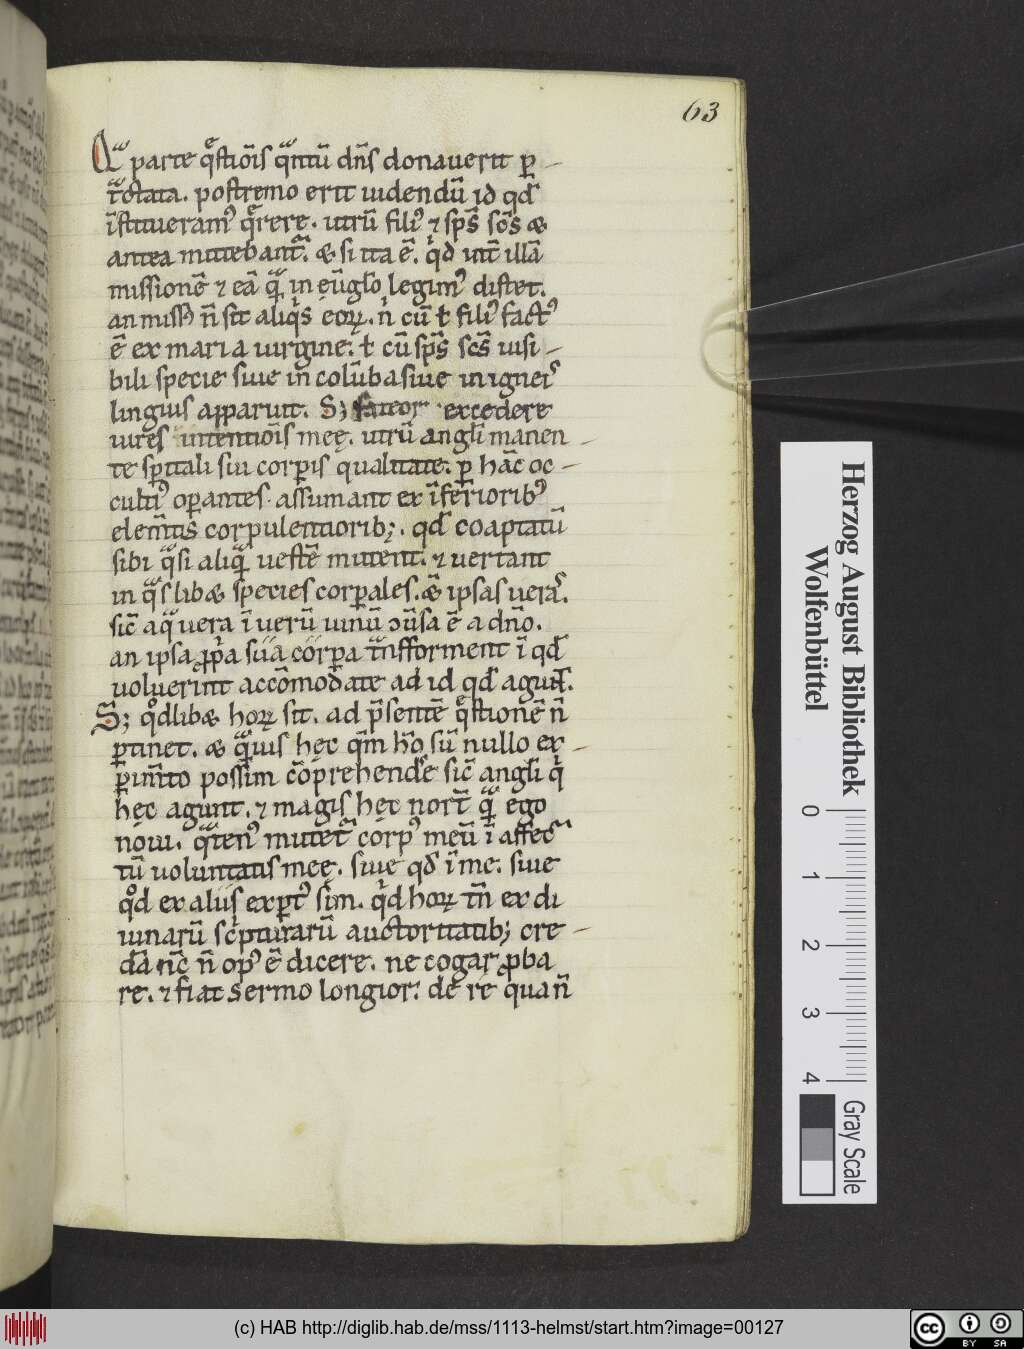 63
Qᵃ parte q̄stiōis qᵃntū dn̄s donauerit p̱ –
tᵃctata. postremo erit uidendū id qd̄
īstitueramꝰ q̄rere. utrū filiꝰ ⁊ sp̄s sc̄s &
antea mittebant᷑. & si ita ē. qⁱd int̄ illā
missionē ⁊ eā qᵃ̄ in eūgl̄o legimꝰ distet.
an missꝰ n̄ sit aliqⁱs eoꝝ. nⁱ cū ł filiꝰ factꝰ
ē ex maria uirgine. ł cū sp̄s sc̄s uisi –
bili specie siue in colūba siue in igneis
linguis apparuit. S; fateor excedere
uires intentiōis meę. utrū angl̄i manen –
te sp̄itali sui corꝑis qualitate. ꝑ hāc oc –
cultiꝰ oꝑantes assumant ex īferioribꝰ
elem̄tis corpulentiorib;. qd̄ coaptatū
sibi qᵃsi aliqᵃ̄ uestē mutent. ⁊ uertant
in qᵃslib& species corꝑales. &̄ ipsas ueras.
sic̄ aqᵃ uera ī uerū uinū ↄūsa ē a dn̄o.
an ipsa ꝓpⁱa sua corꝑa tᵃnfforment ī qd̄
uoluerint accōmodate ad id qd̄ agunt.
S; qᵒdlib& hoꝝ sit. ad p̄sentē q̄stionē n̄
ꝑtinet. & qᵃ̄uis hęc qm̄ hō sū nullo ex –
ꝑim̄to possim cōprehendꝰe sic̄ angl̄i qⁱ
hęc agunt. ⁊ magis hęc nort̄ qᵃ̄ ego
noui. qᵃtenꝰ mutet᷑ corpꝰ meū ī affec
tū uoluntatis meę. siue qd̄ ī me. siue
qᵒd ex aliis exꝑtꝰ sim. qⁱd hoꝝ tn̄ ex di
uinarū scⁱpturarū auctoritatib; cre –
dā nc̄ n̄ opꝰ ē dicere. ne cogar ꝓba
re. ⁊ fiat sermo longior. de re qua n̄
Herzog August Bibliothek
Wolfenbüttel
0 1 2 3 4 Gray Scale
(c) HAB http://diglib.hab.de/mss/1113-helmst/start.htm?image=00127
cc BY SA